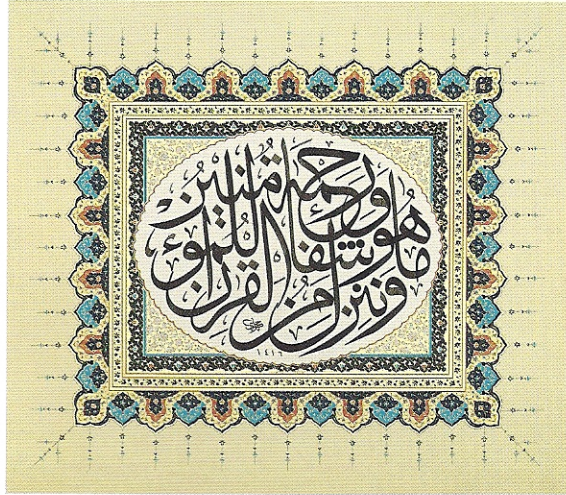 وَنُنَزِّلُ مِنَ الْقُرْآنِ مَا هُوَ شِفَاءٌ وَرَحْمَةٌ لِلْمُؤْمِنِينَ
١٤١٦